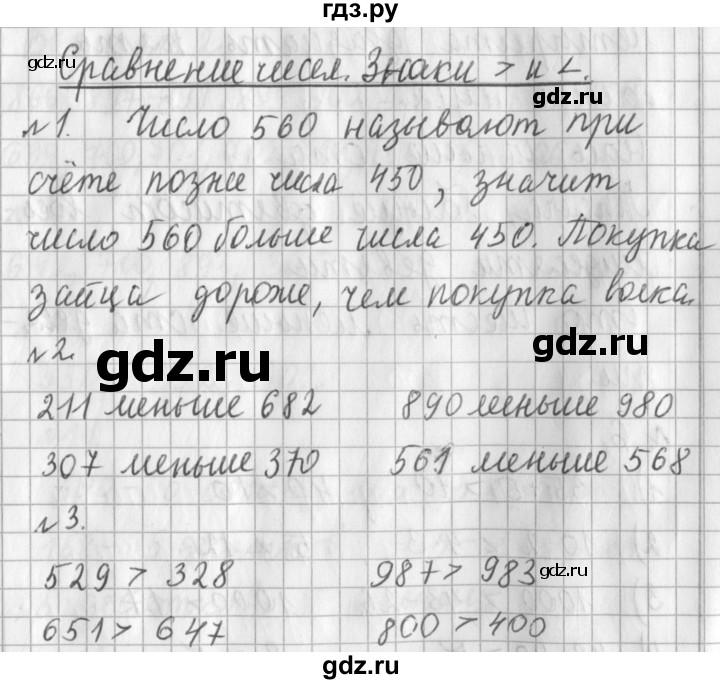 гдз.ру
gdz.ru
Сравнение чисел. Знаки > и <.
gdz.ru
№1. Число 560 называют при
счёте позже числа 450, значит
число 560 больше числа 450. Покупка
зайца дороже, чем покупка волка.
№2.
gdz.ru
gdz.ru
211 меньше 682 890 меньше 980
307 меньше 370 561 меньше 568
№3.
529 > 328 987 > 983
gdz.ru
651 > 647 800 > 400
gdz.ru